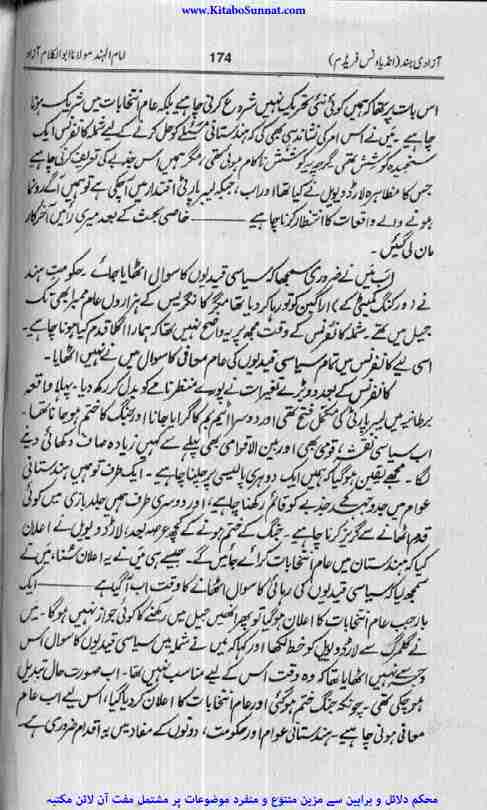 www.KitaboSunnat.com
آزادی ہند (انڈیا ونس فریڈم)
174
امام الہند مولانا ابوالکلام آزاد
اس بات پر تھا کہ ہمیں کوئی نئی تحریک نہیں شروع کرنی چاہیے بلکہ عام انتخابات میں شریک ہونا
چاہیے۔ میں نے اس امر کی نشاندہی بھی کی کہ ہندستانی مسئلے کو حل کرنے کے لیے شملہ کانفرنس ایک
سنجیدہ کوشش تھی۔ گرچہ یہ کوشش ناکام ہوئی تھی، مگر ہمیں اس جذبے کی تعریف کرنی چاہیے
جس کا مظاہرہ لارڈ ویول نے کیا تھا اور اب، جبکہ لیبر پارٹی اقتدار میں آچکی ہے تو ہمیں آگے رونما
ہونے والے واقعات کا انتظار کرنا چاہیے ——— خاصی بحث کے بعد میری رائیں آخرکار
مان لی گئیں۔
اب میں نے ضروری سمجھا کہ سیاسی قیدیوں کا سوال اٹھایا جائے۔ حکومتِ ہند
نے (ورکنگ کمیٹی کے) اراکین کو تو رہا کر دیا تھا مگر کانگریس کے ہزاروں عام ممبر ابھی تک
جیل میں تھے۔ شملہ کانفرنس کے وقت مجھ پر یہ واضح نہیں تھا کہ ہمارا اگلا قدم کیا ہونا چاہیے۔
اسی لیے کانفرنس میں تمام سیاسی قیدیوں کی عام معافی کا سوال میں نے نہیں اٹھایا۔
کانفرنس کے بعد دو بڑے تغیرات نے پورے منظر نامے کو بدل کر رکھ دیا۔ پہلا واقعہ
برطانیہ میں لیبر پارٹی کی مکمل فتح تھی اور دوسرا ایٹم بم کا گرایا جانا اور جنگ کا ختم ہو جانا تھا۔
اب سیاسی نقشہ، قومی بھی اور بین الاقوامی بھی پہلے سے کہیں زیادہ صاف دکھائی دینے
لگا۔ مجھے یقین ہو گیا کہ ہمیں ایک دوہری پالیسی پر چلنا چاہیے۔ ایک طرف تو ہمیں ہندستانی
عوام میں جدوجہد کے جذبے کو قائم رکھنا چاہیے، اور دوسری طرف ہمیں جلد بازی میں کوئی
قدم اٹھانے سے گریز کرنا چاہیے۔ جنگ کے ختم ہونے کے کچھ عرصہ بعد، لارڈ ویول نے اعلان
کیا کہ ہندستان میں عام انتخابات کرائے جائیں گے۔ جیسے ہی میں نے یہ اعلان سُنا، میں نے
سمجھ لیا کہ سیاسی قیدیوں کی رہائی کا سوال اٹھانے کا وقت اب آگیا ہے ——— ایک
بار جب عام انتخابات کا اعلان ہو گیا تو پھر انھیں جیل میں رکھنے کا کوئی جواز نہیں ہوگا۔ میں
نے گلمرگ سے لارڈ ویول کو خط لکھا اور کہا کہ میں نے شملہ میں سیاسی قیدیوں کا سوال اس
وجہ سے نہیں اٹھایا تھا کہ وہ وقت اس کے لیے مناسب نہیں تھا۔ اب صورتِ حال تبدیل
ہو چکی تھی۔ چونکہ جنگ ختم ہو گئی اور عام انتخابات کا اعلان کر دیا گیا، اس لیے اب عام
معافی ہونی چاہیے۔ ہندستانی عوام اور حکومت، دونوں کے مفاد میں یہ اقدام ضروری ہے۔
محکم دلائل و براہین سے مزین متنوع و منفرد موضوعات پر مشتمل مفت آن لائن مکتبہ